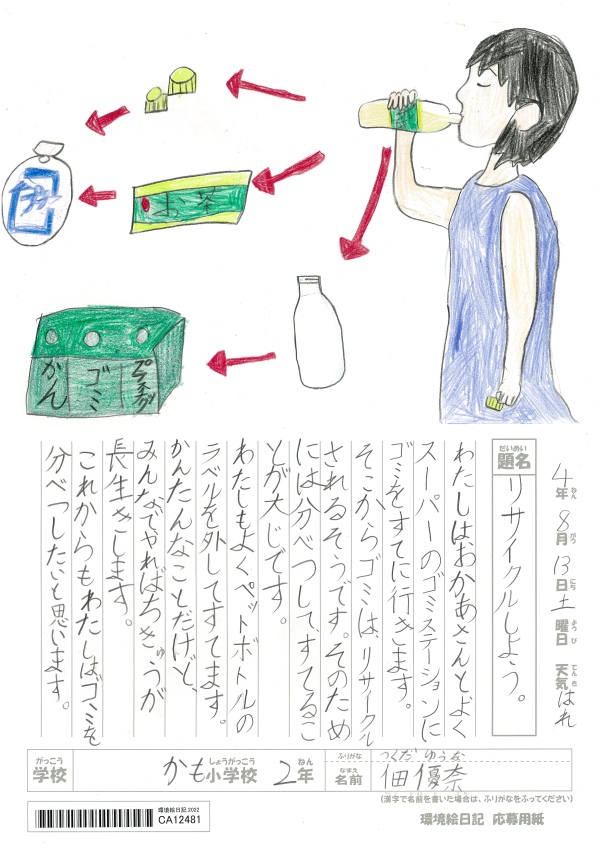 プラ
お茶
かん
ゴミ
4年ねん8月がつ13日にち土曜日ようび天気てんきはれ
題名だいめい
リサイクルしよう。
わたしはおかあさんとよく
スーパーのゴミステーションに
ゴミをすてに行きます。
そこからゴミは、リサイクル
されるそうです。そのため
には分べつして、すてるこ
とが大じです。
わたしもよくペットボトルの
ラベルを外してすてます。
かんたんなことだけど、
みんなでやればちきゅうが
長生きします。
これからもわたしはゴミを
分べつしたいと思います。
がっこう
学校
かも小学校しょうがっこう 2年ねん
ふりがな
つくだ ゆうな
なまえ
名前
佃 優奈
(漢字で名前を書いた場合は、ふりがなをふってください)
環境絵日記 2022
CA12481
環境絵日記 応募用紙